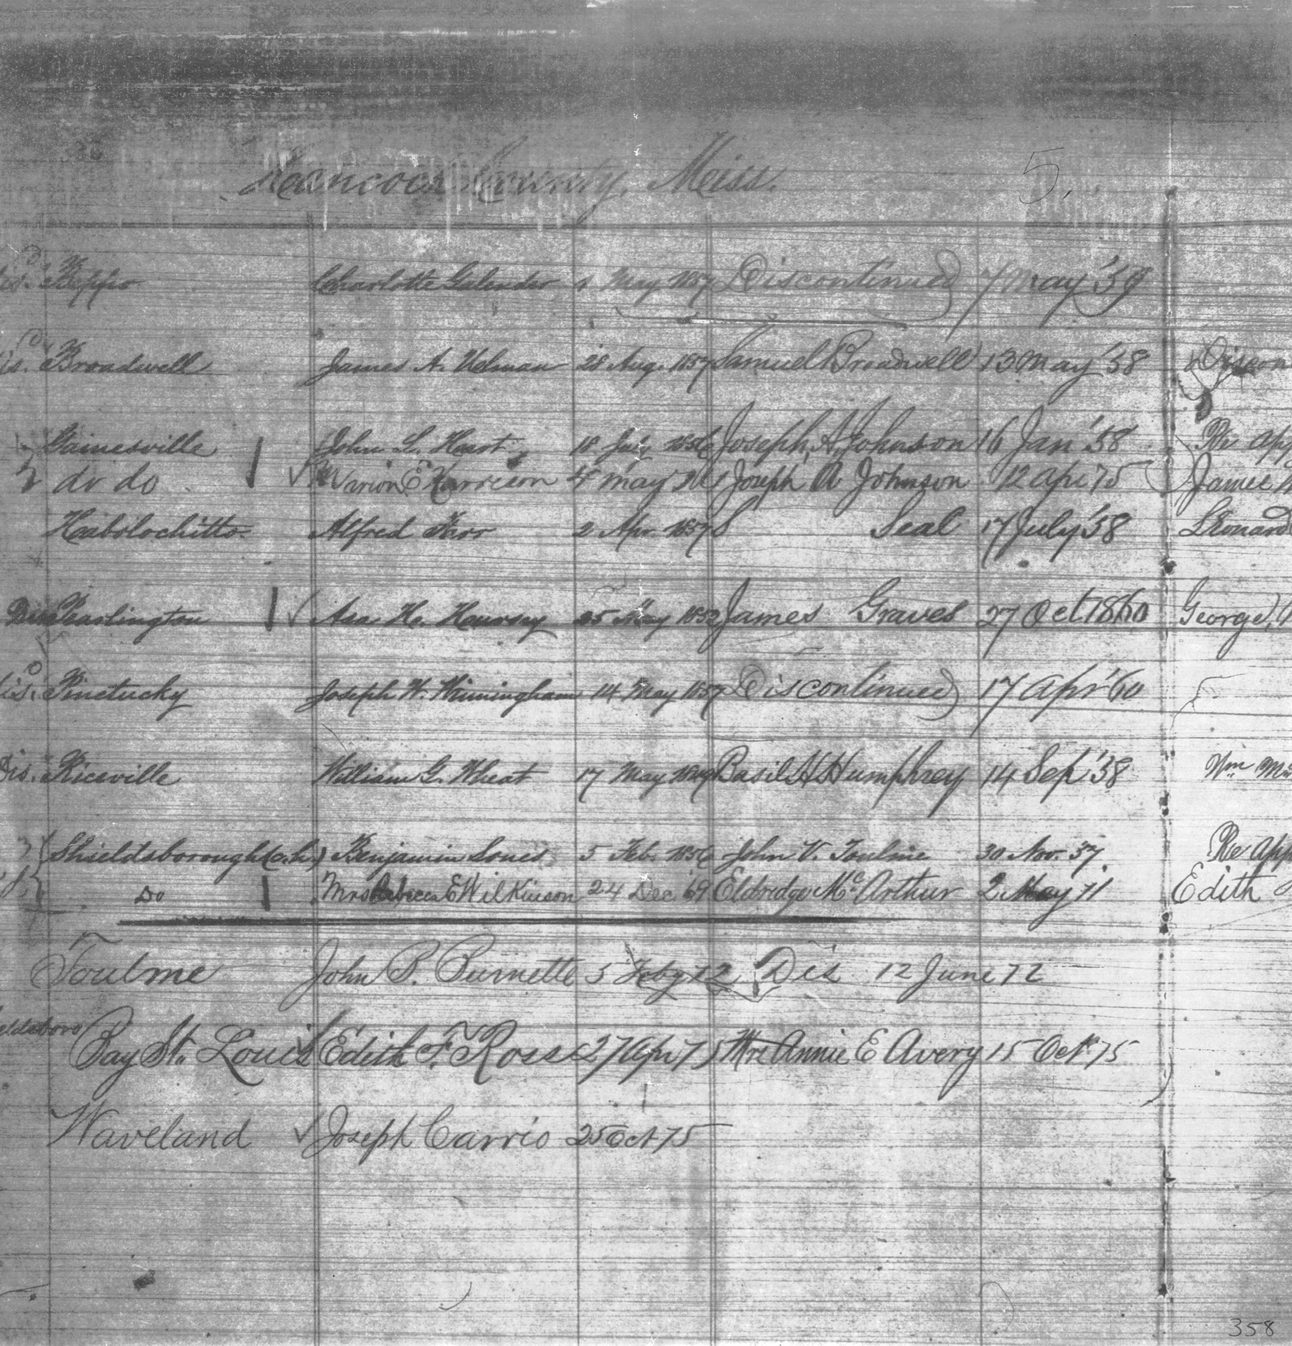 Hancock County, Miss. 5.
Dis. Charlotte Galender May 1857 Discontinued 7 May '59
Dis. Broadwell James A. 28 Aug. 1857 Samuel Broadwell 13 May '58 Discon
Gainesville John S. Hart 18 July 1856 Joseph A. Johnson 16 Jan '58 Re app
do do Marion E Harrison 4 May Joseph A Johnson 12 Apr 75 James
Habolochitto Alfred 2 Apr 1857 S Seal 17 July '58 Leonard
Pearlington Asa H. Hoursey 25 May 1852 James Graves 27 Oct 1860 George
Dis. Pinetucky Joseph W. 14 May 1857 Discontinued 17 Apr '60
Dis. Riceville William G. Wheat 17 May Basil H Humphrey 14 Sep '58 Wm
Shieldsborough (c.h.) Benjamin 5 Feb. 1856 John V. Toulme 30 Nov. 57 Re app
Do Mrs Rebecca E Wilkinson 24 Dec 69 Eldredge Mc Arthur 2 May 71 Edith
Toulme John P. Burnette 5 Feby 72 Dis 12 June 72
eldsboro Bay St. Louis Edith F. Ross 27 Apr 75 Mrs Annie E Avery 15 Oct 75
Waveland Joseph Carrio 25 Oct 75
358